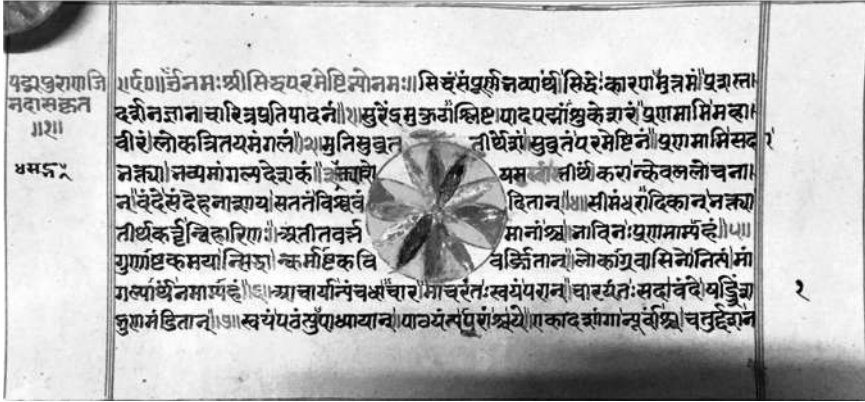 पद्मपुराणजि
नदासकृत
॥१॥
॥र्द०॥ॐनमः श्रीसिद्धपरमेष्टिन्योनमः॥ सिद्धं संपूर्णभव्यार्थं सिद्धेः कारणमुत्तमं। प्रशस्त
दर्शनज्ञानचारित्रप्रतिपादनं॥१॥ सुरेंद्रमुकुटाश्लिष्टपादपद्मांशुकेशरं प्रणमामि महा
वीरं लोकत्रितयमंगलं॥२॥ मुनिसुव्रत तीर्थेशं सुव्रतं परमेष्टिनं। प्रणमामि सदा
भक्त्या भव्यमांगल्यदेशकं॥ तीर्थकरान् केवललोचना
न् वंदे संदेहनाशाय सततं विश्ववं दितान्॥४॥ सीमंधरादिकान् भक्त्या
तीर्थकर्तॄन्विहारिणः। अतीतवर्त्त मानांश्च भाविनः प्रणमाम्यहं॥५॥
गुणाष्टकमयान्सिद्धान्कर्माष्टकवि वर्जितान्। लोकाग्रवासिनो नित्यं मां
गल्यार्थं नमाम्यहं॥६॥ आचार्यान्पंचधाचारमाचरंतः स्वयं परान्। चारयंतः सदा वंदे षड्त्रिंश
द्गुणमंडितान्॥७॥ स्वयं पठंत्युपाध्यायान् पाठयंत्यपरांश्च ये। एकादशांगान्पूर्वांश्च चतुर्दश
१